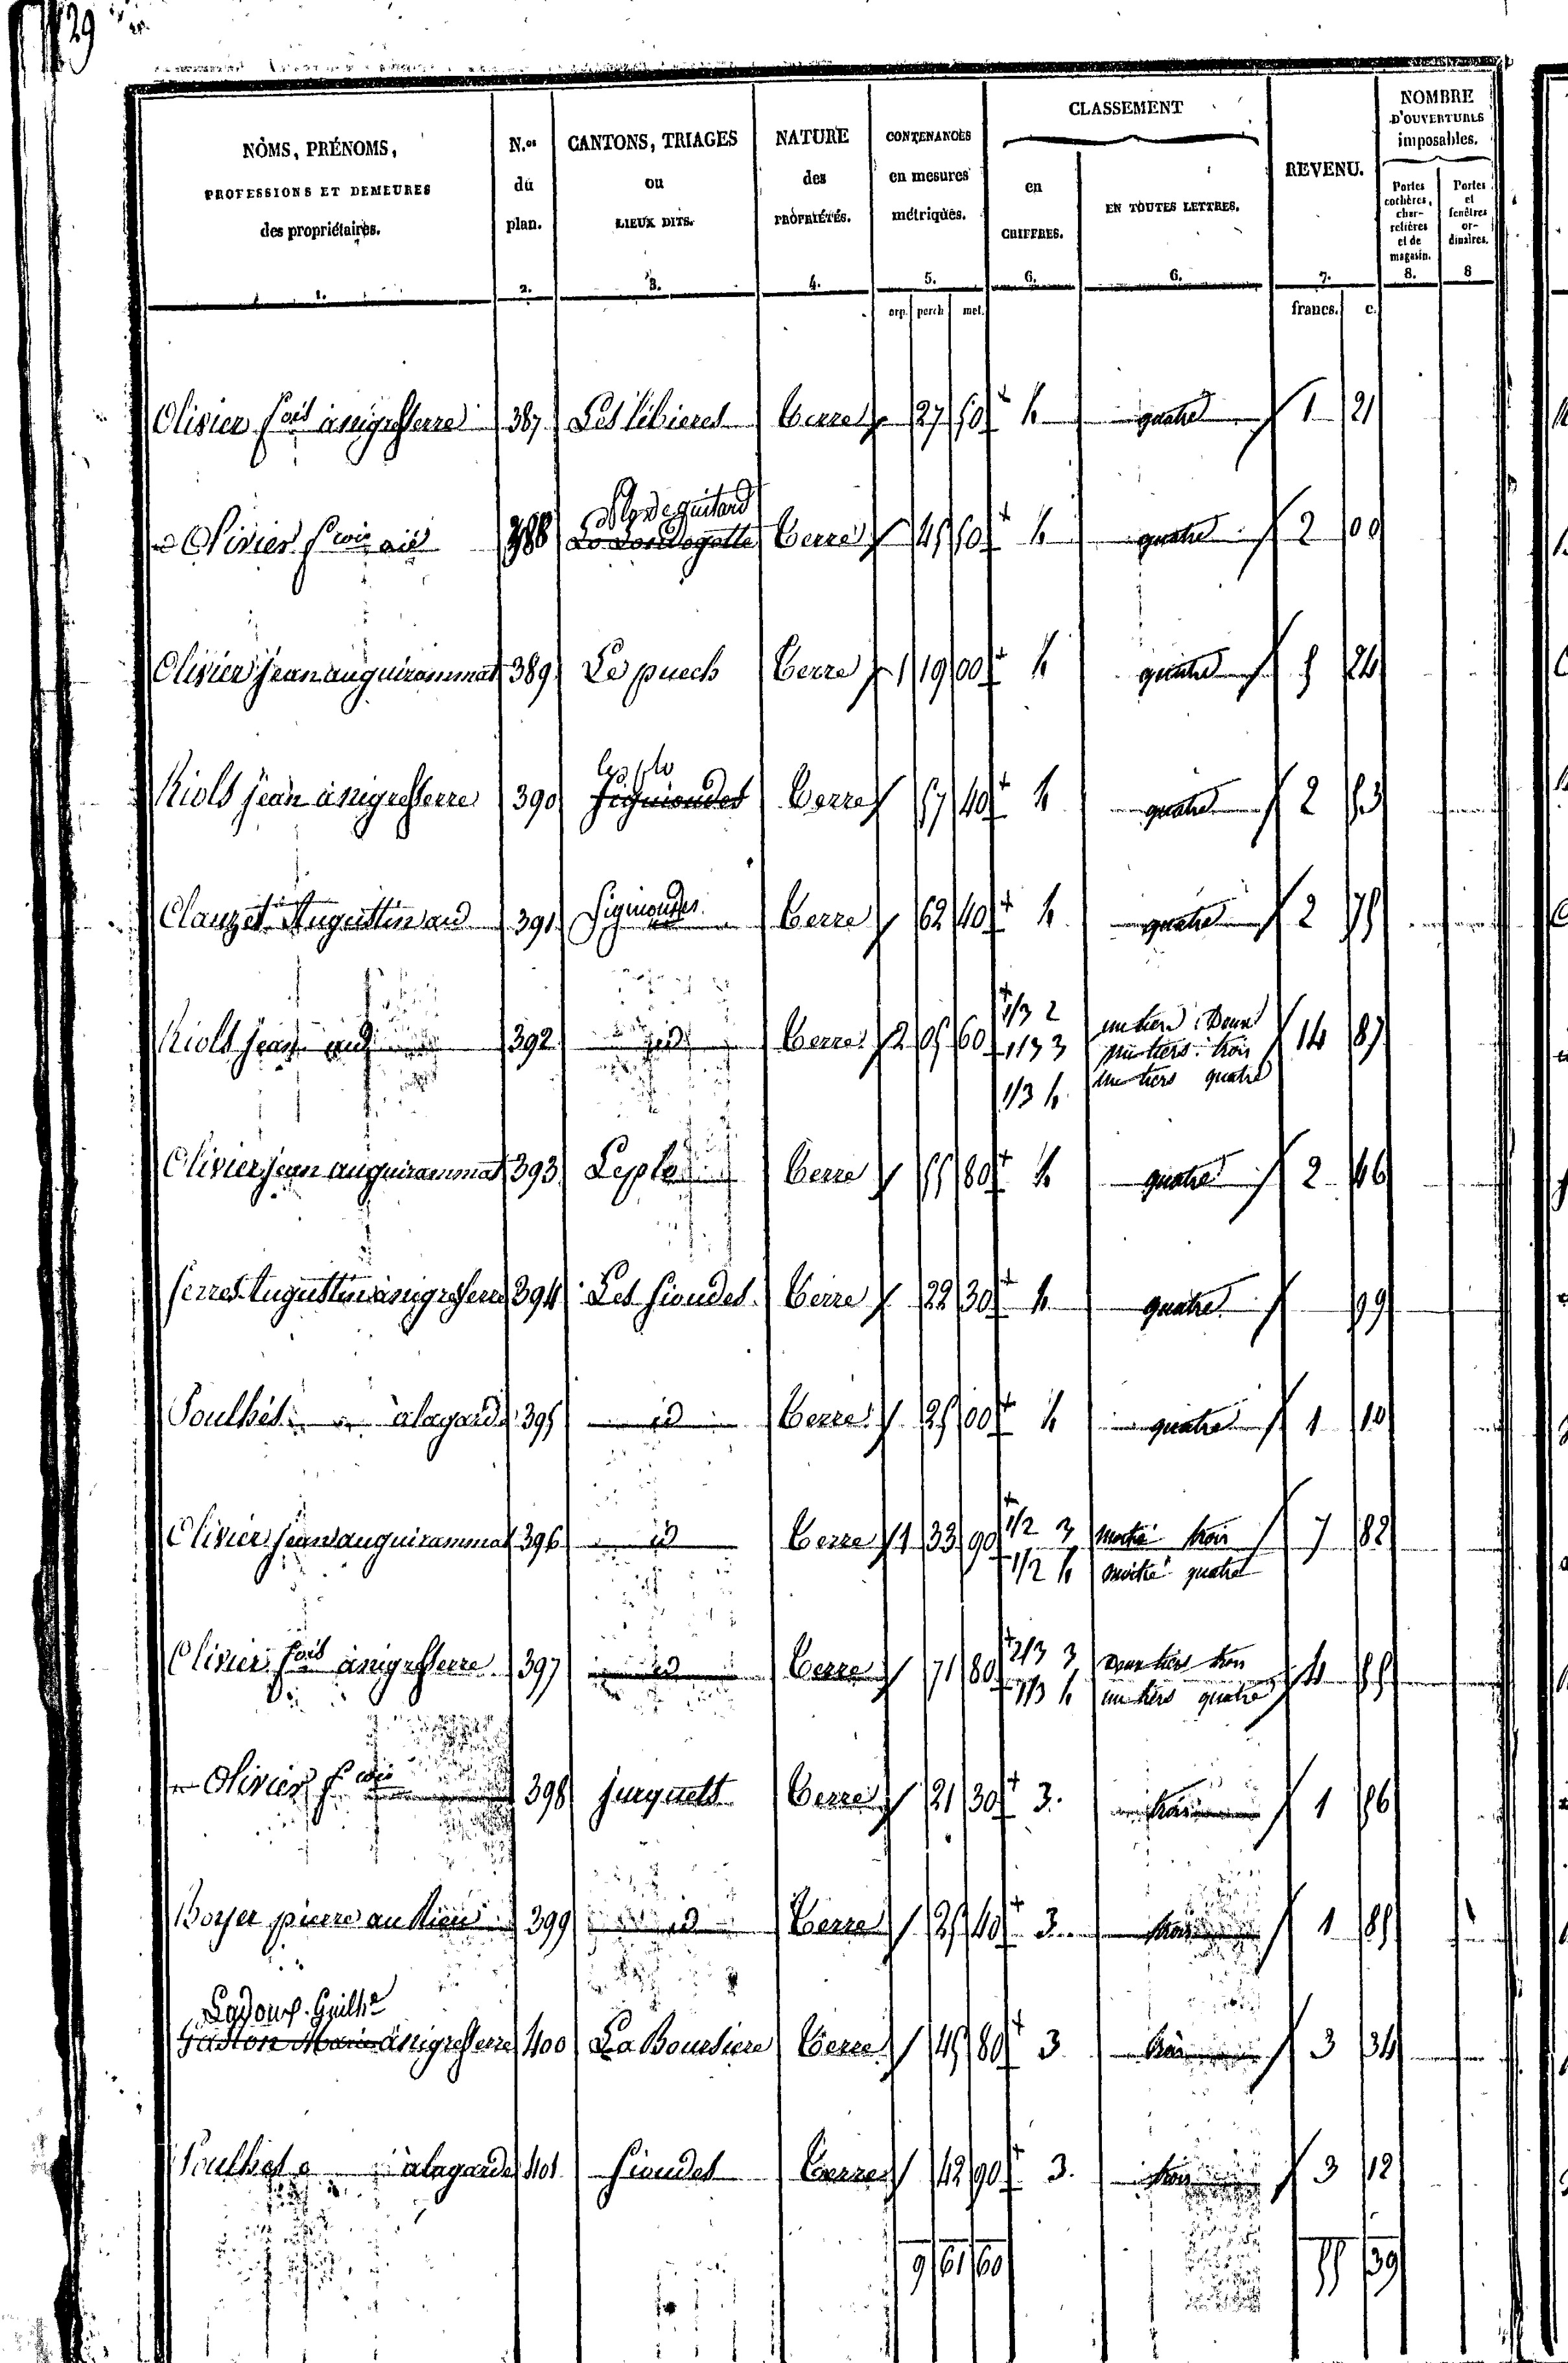 29
NOMS, PRÉNOMS, PROFESSIONS ET DEMEURES des propriétaires. 1.
N.os du plan. 2.
CANTONS, TRIAGES ou LIEUX DITS. 3.
NATURE des PROPRIÉTÉS. 4.
CONTENANCES en mesures métriques. 5.
CLASSEMENT
en CHIFFRES. 6.
EN TOUTES LETTRES. 6.
REVENU. 7.
NOMBRE D'OUVERTURES imposables.
Portes cochères, charretières et de magasin. 8.
Portes et fenêtres ordinaires. 8
arp. perch. met. francs. c.
Olivier fois à nigresserre 387 Les Tibieres Terre 27 50 4 quatre 1 21
Olivier fcois 388 Terre 45 50 4 quatre 2 00
Olivier jean auguirammat 389 Le puech Terre 1 19 00 4 quatre 5 24
Riols jean à nigresserre 390 Figuioudes Terre 57 40 4 quatre 2 53
Clauzet Augustin au 391 Terre 62 40 4 quatre 2 75
Riols jean aud 392 id Terre 2 05 60 1/3 2 un tiers Deux 14 87
1/3 3 un tiers trois
1/3 4 un tiers quatre
Olivier jean auguirammat 393 Le plo Terre 55 80 4 quatre 2 46
Serres Augustin à nigresserre 394 Les fioudes Terre 22 30 4 quatre 99
Poulhés à lagarde 395 id Terre 25 00 4 quatre 1 10
Olivier jean auguirammat 396 id Terre 1 33 90 1/2 3 moitié trois 7 82
1/2 4 moitié quatre
Olivier fois à nigresserre 397 id Terre 71 80 2/3 3 Deux tiers trois 4 55
1/3 4 un tiers quatre
Olivier fcois 398 jurquets Terre 21 30 3. trois 1 56
Boyer pierre au Rieu 399 id Terre 25 40 3. trois 1 85
Gaston Marie à nigresserre 400 La Boursiere Terre 45 80 3 trois 3 34
Poulhés à lagarde 401 fioudes Terre 42 90 3. trois 3 12
9 61 60 55 39